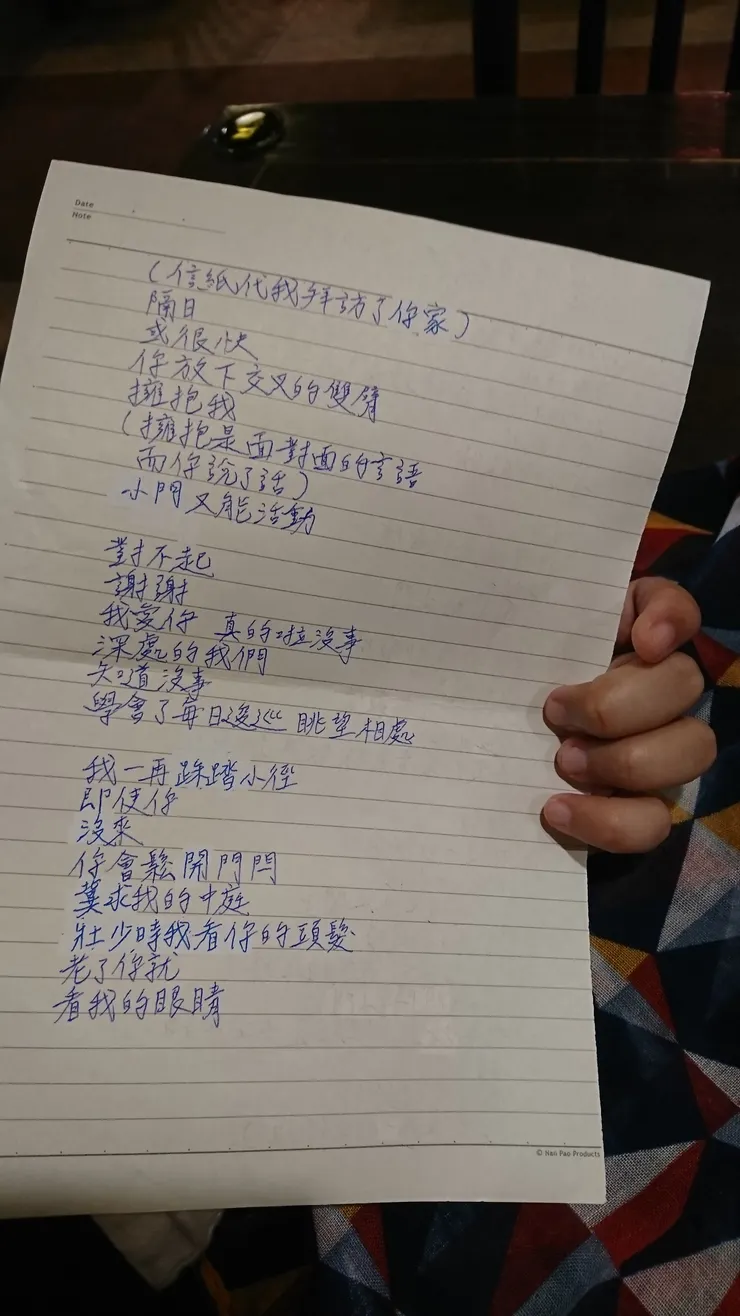 Date
Note
(信紙代我拜訪了你家)
隔日
或很快
你放下交叉的雙臂
擁抱我
(擁抱是面對面的言語
而你說了話)
小門又能活動
對不起
謝謝
我愛你 真的啦沒事
深處的我們
知道沒事
學會了每日逡巡 眺望相處
我一再踩踏小徑
即使你
沒來
你會鬆開門閂
冀求我的中庭
壯少時我看你的頭髮
老了你就
看我的眼睛
© Nan Pao Products